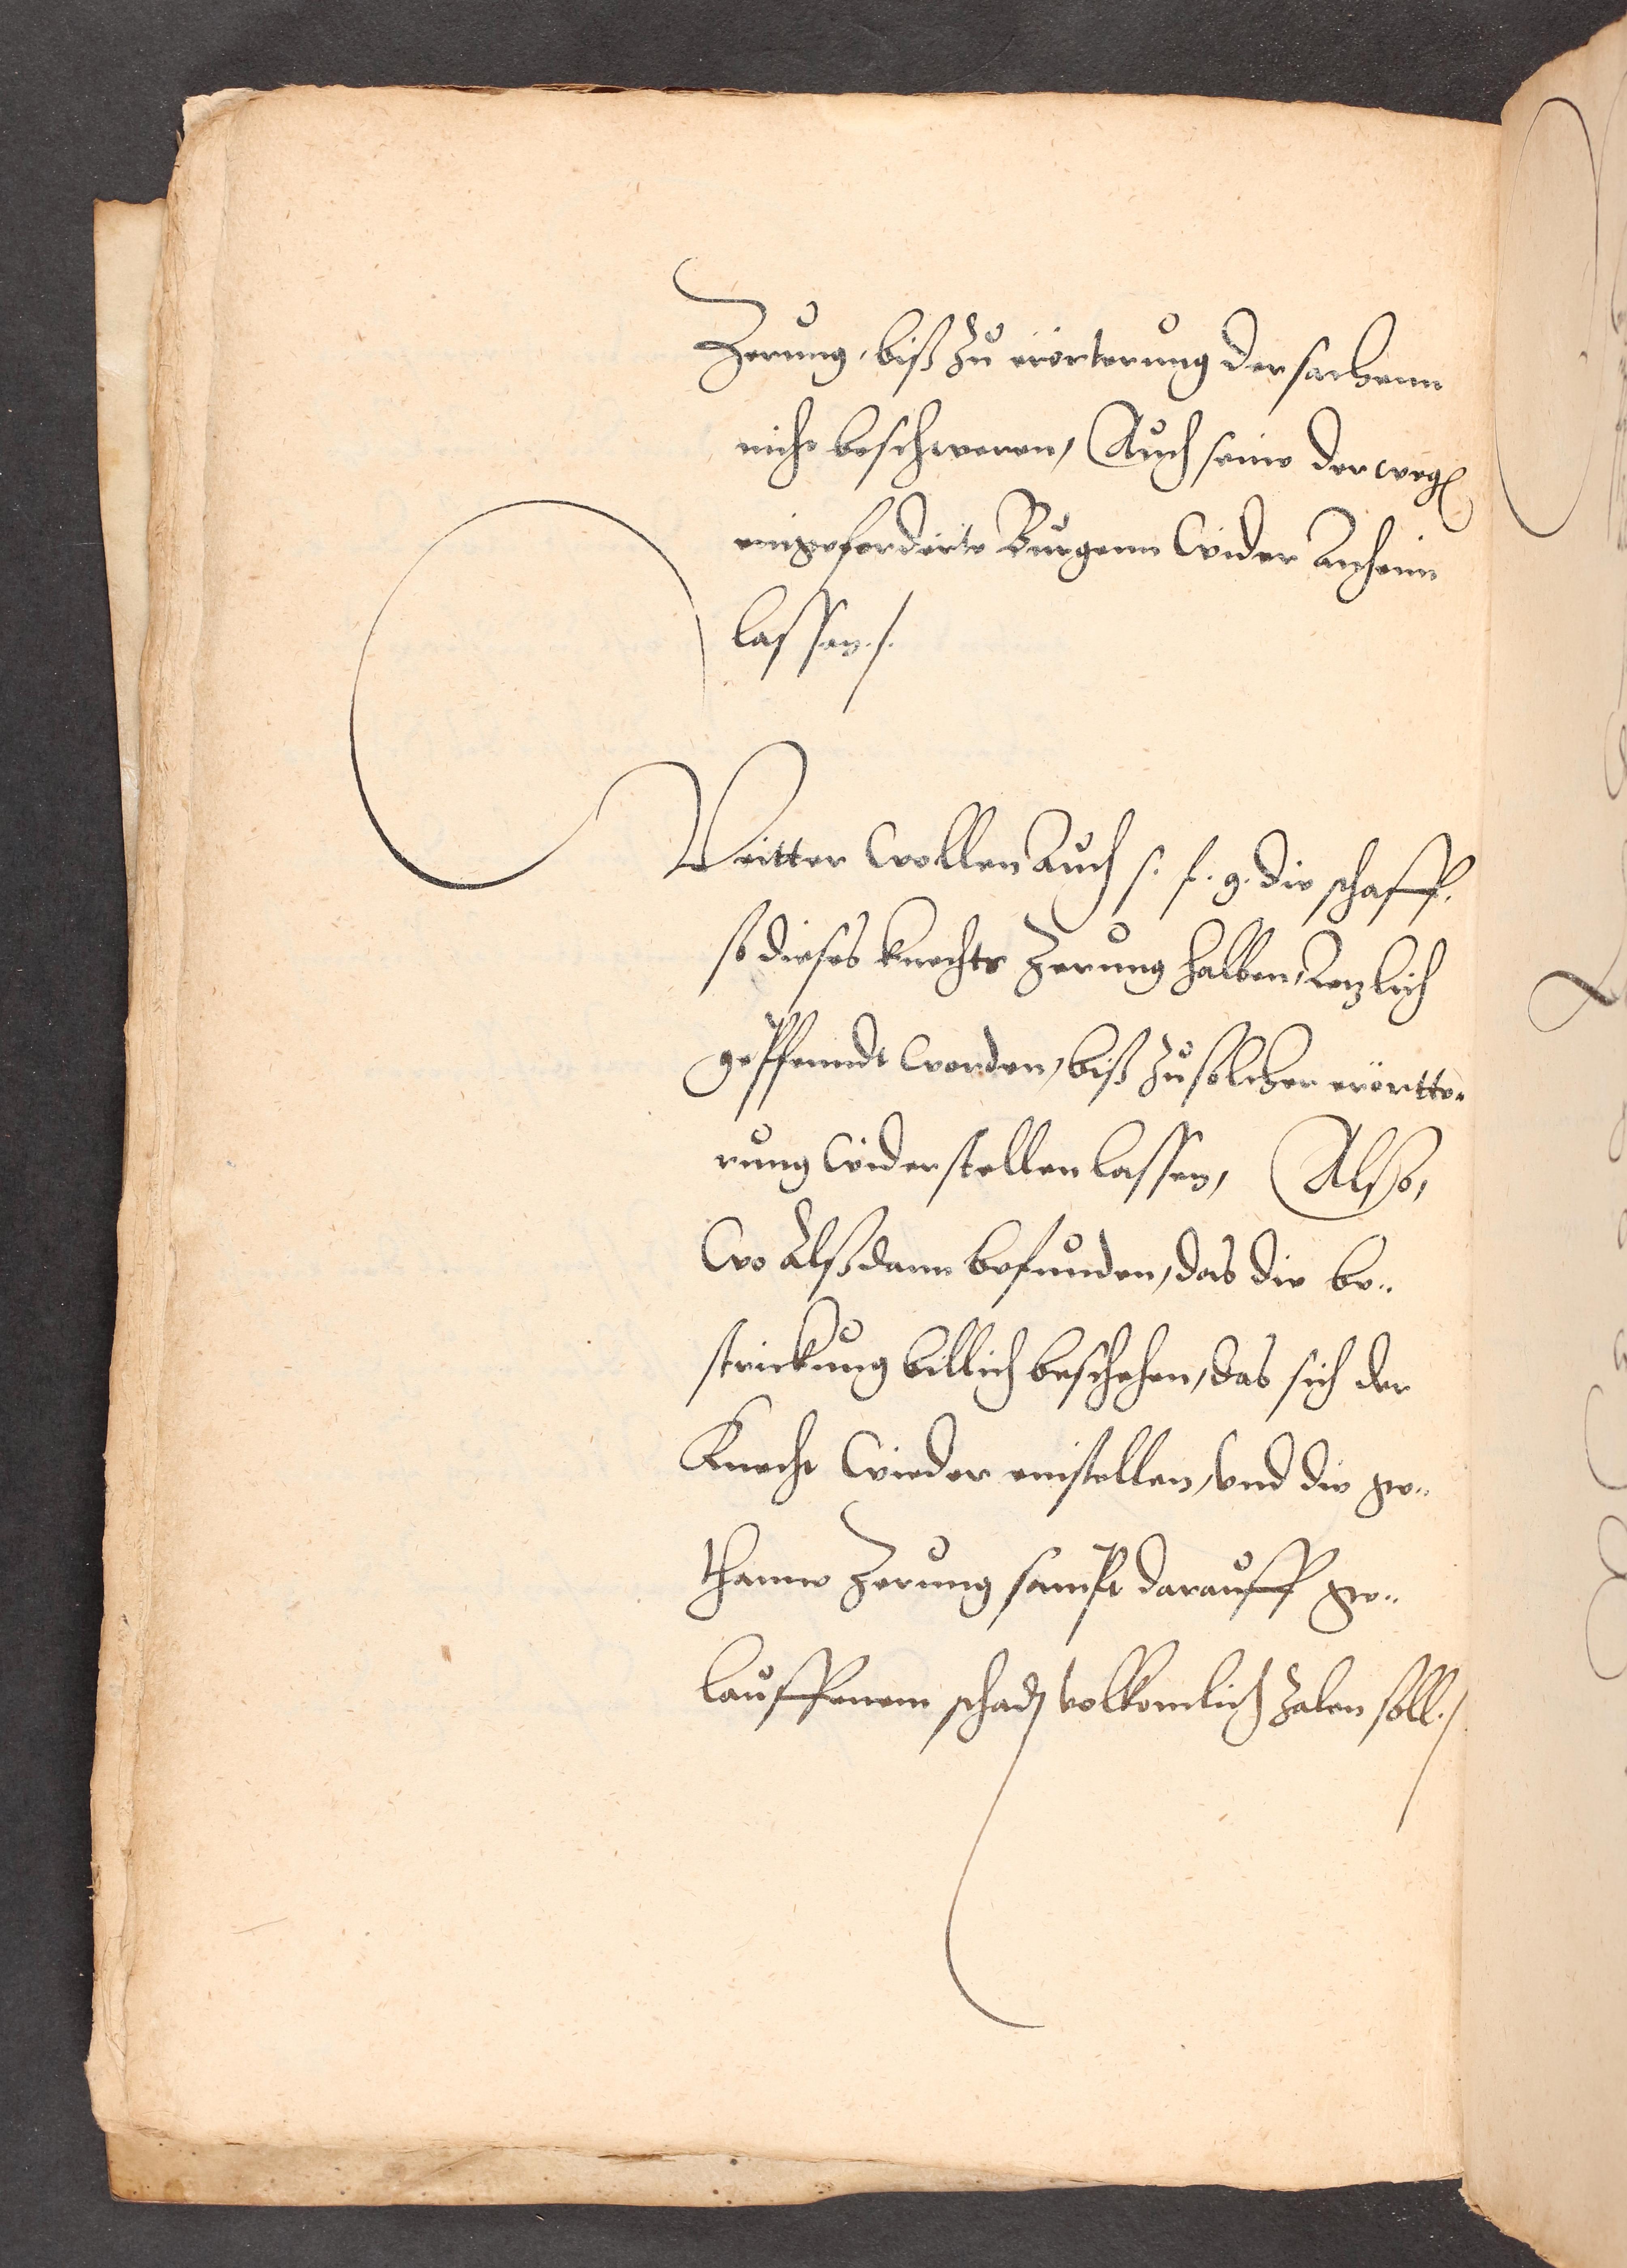 Zerung, biß zu erörterung der sachenn
nicht beschweren, Auch seine derweg
eingeforderte Burgenn wider Anheim
lassen./.
Weitter wollen Auch s. f. g. die schaff,
so dieses knechts Zerung halben, Letzlich
gepffenndt worden, biß zu solcher erortte„
rung wider stellen lassen, Also,
wo Alßdann befunden, das die be„
strickung billich beschehen, das sich der
Knecht wieder einstellen, vnd die ge„
thanne Zerung sampt darauff ge„
lauffenem schad volkomlich zalen soll./